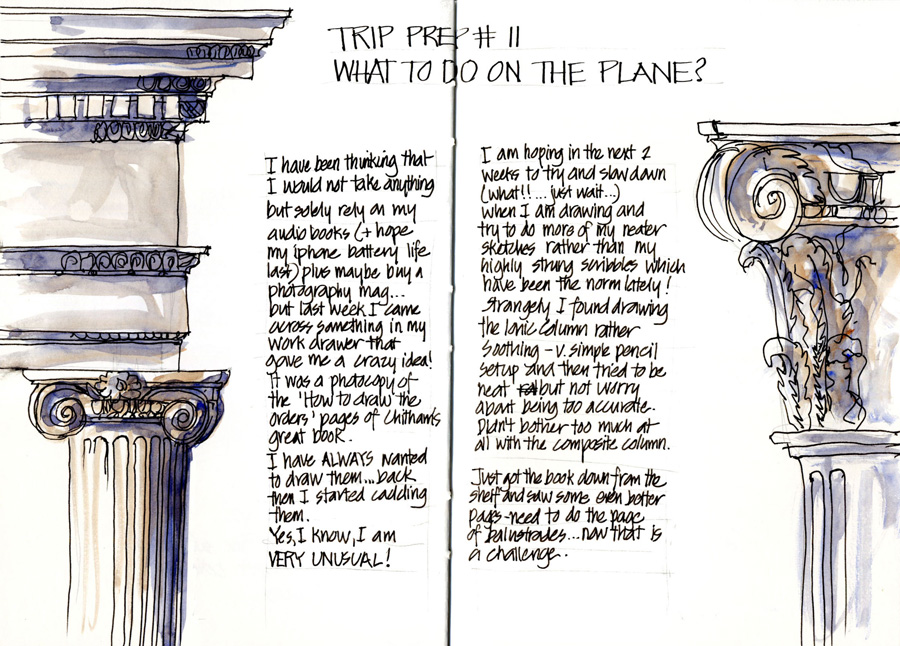 TRIP PREP # 11
WHAT TO DO ON THE PLANE?
I have been thinking that
I would not take anything
but solely rely on my
audio books (+ hope
my iphone battery life
last) plus maybe buy a
photography mag...
but last week I came
across something in my
work drawer that
gave me a crazy idea!
It was a photocopy of
the 'How to draw the
orders' pages of Chitham's
great book.
I have ALWAYS wanted
to draw them...back
then I started cadding
them.
Yes, I know, I am
VERY UNUSUAL!
I am hoping in the next 2
weeks to try and slow down
(what!!... just wait...)
when I am drawing and
try to do more of my neater
sketches rather than my
highly strung scribbles which
have been the norm lately!
Strangely I found drawing
the Ionic column rather
soothing - v. simple pencil
setup and then tried to be
neat but not worry
about being too accurate.
Didn't bother too much at
all with the composite column.
Just got the book down from the
shelf and saw some even better
pages - need to do the page
of balustrades... now that is
a challenge..